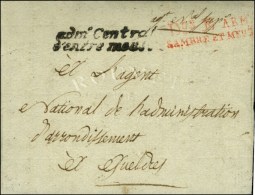 adm.on Centra
d'entre meuse
ARM.
SAMBRE ET MEUSE
A l'agent
National de l'administration
d'arrondissement
A Gueldres